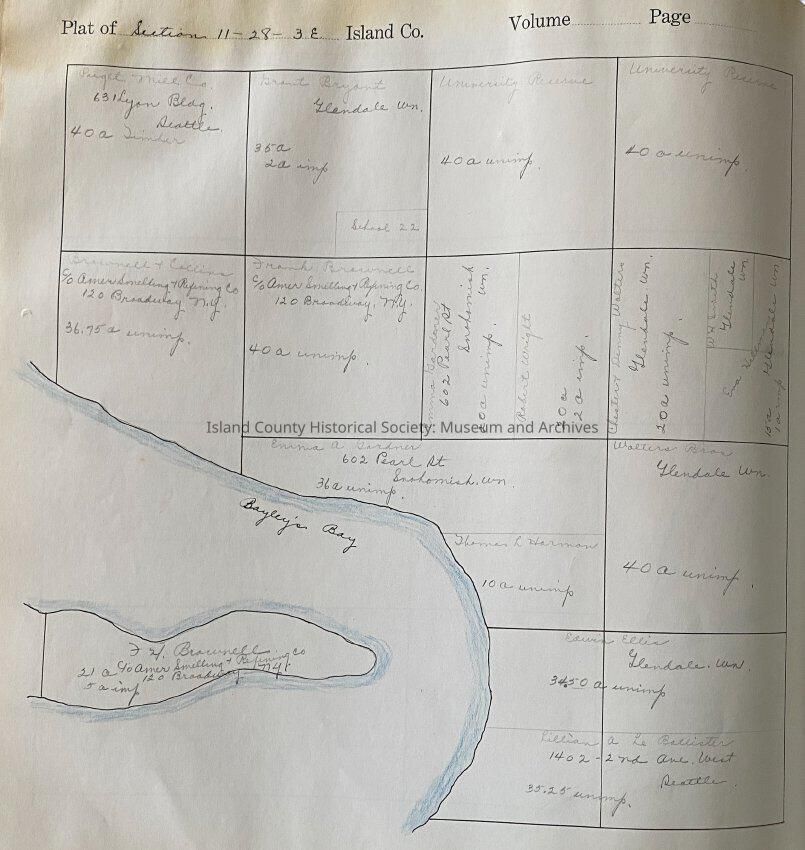 Plat of Section 11-28-3E Island Co. Volume Page
Puget Mill Co.
631 Lyon Bldg.
Seattle
40 a Timber
Grant Bryant
Glendale Wn.
38 a
2 a imp
School 22
University Reserve
40 a unimp.
University Reserve
40 a unimp.
Brownell & Collins
C/o Amer Smelting & Refining Co
120 Broadway N.Y.
36.75 a unimp.
Frank Brownell
C/o Amer Smelting & Refining Co.
120 Broadway. N.Y.
40 a unimp.
Emma Gardner
602 Pearl St
Snohomish Wn.
20 a unimp.
Robert Wright
20 a
2 a imp.
Chester & Denny Walters
Glendale Wn.
20 a unimp.
W R Smith
Glendale
Wn
Eva
Glendale Wn
1 a imp
Island County Historical Society: Museum and Archives
Emma A Gardner
602 Pearl St
Snohomish, Wn.
36 a unimp.
Walters Bros
Glendale Wn.
40 a unimp.
Bayley's Bay
Thomas L Harmon
10 a unimp
F. H. Brownell
C/o Amer Smelting & Refining Co
120 Broadway N.Y.
21 a
5 a imp
Edwin Ellis
Glendale. Wn.
34.50 a unimp
Lillian A Le Ballister
1402-2nd Ave. West
Seattle
35.25 unimp.